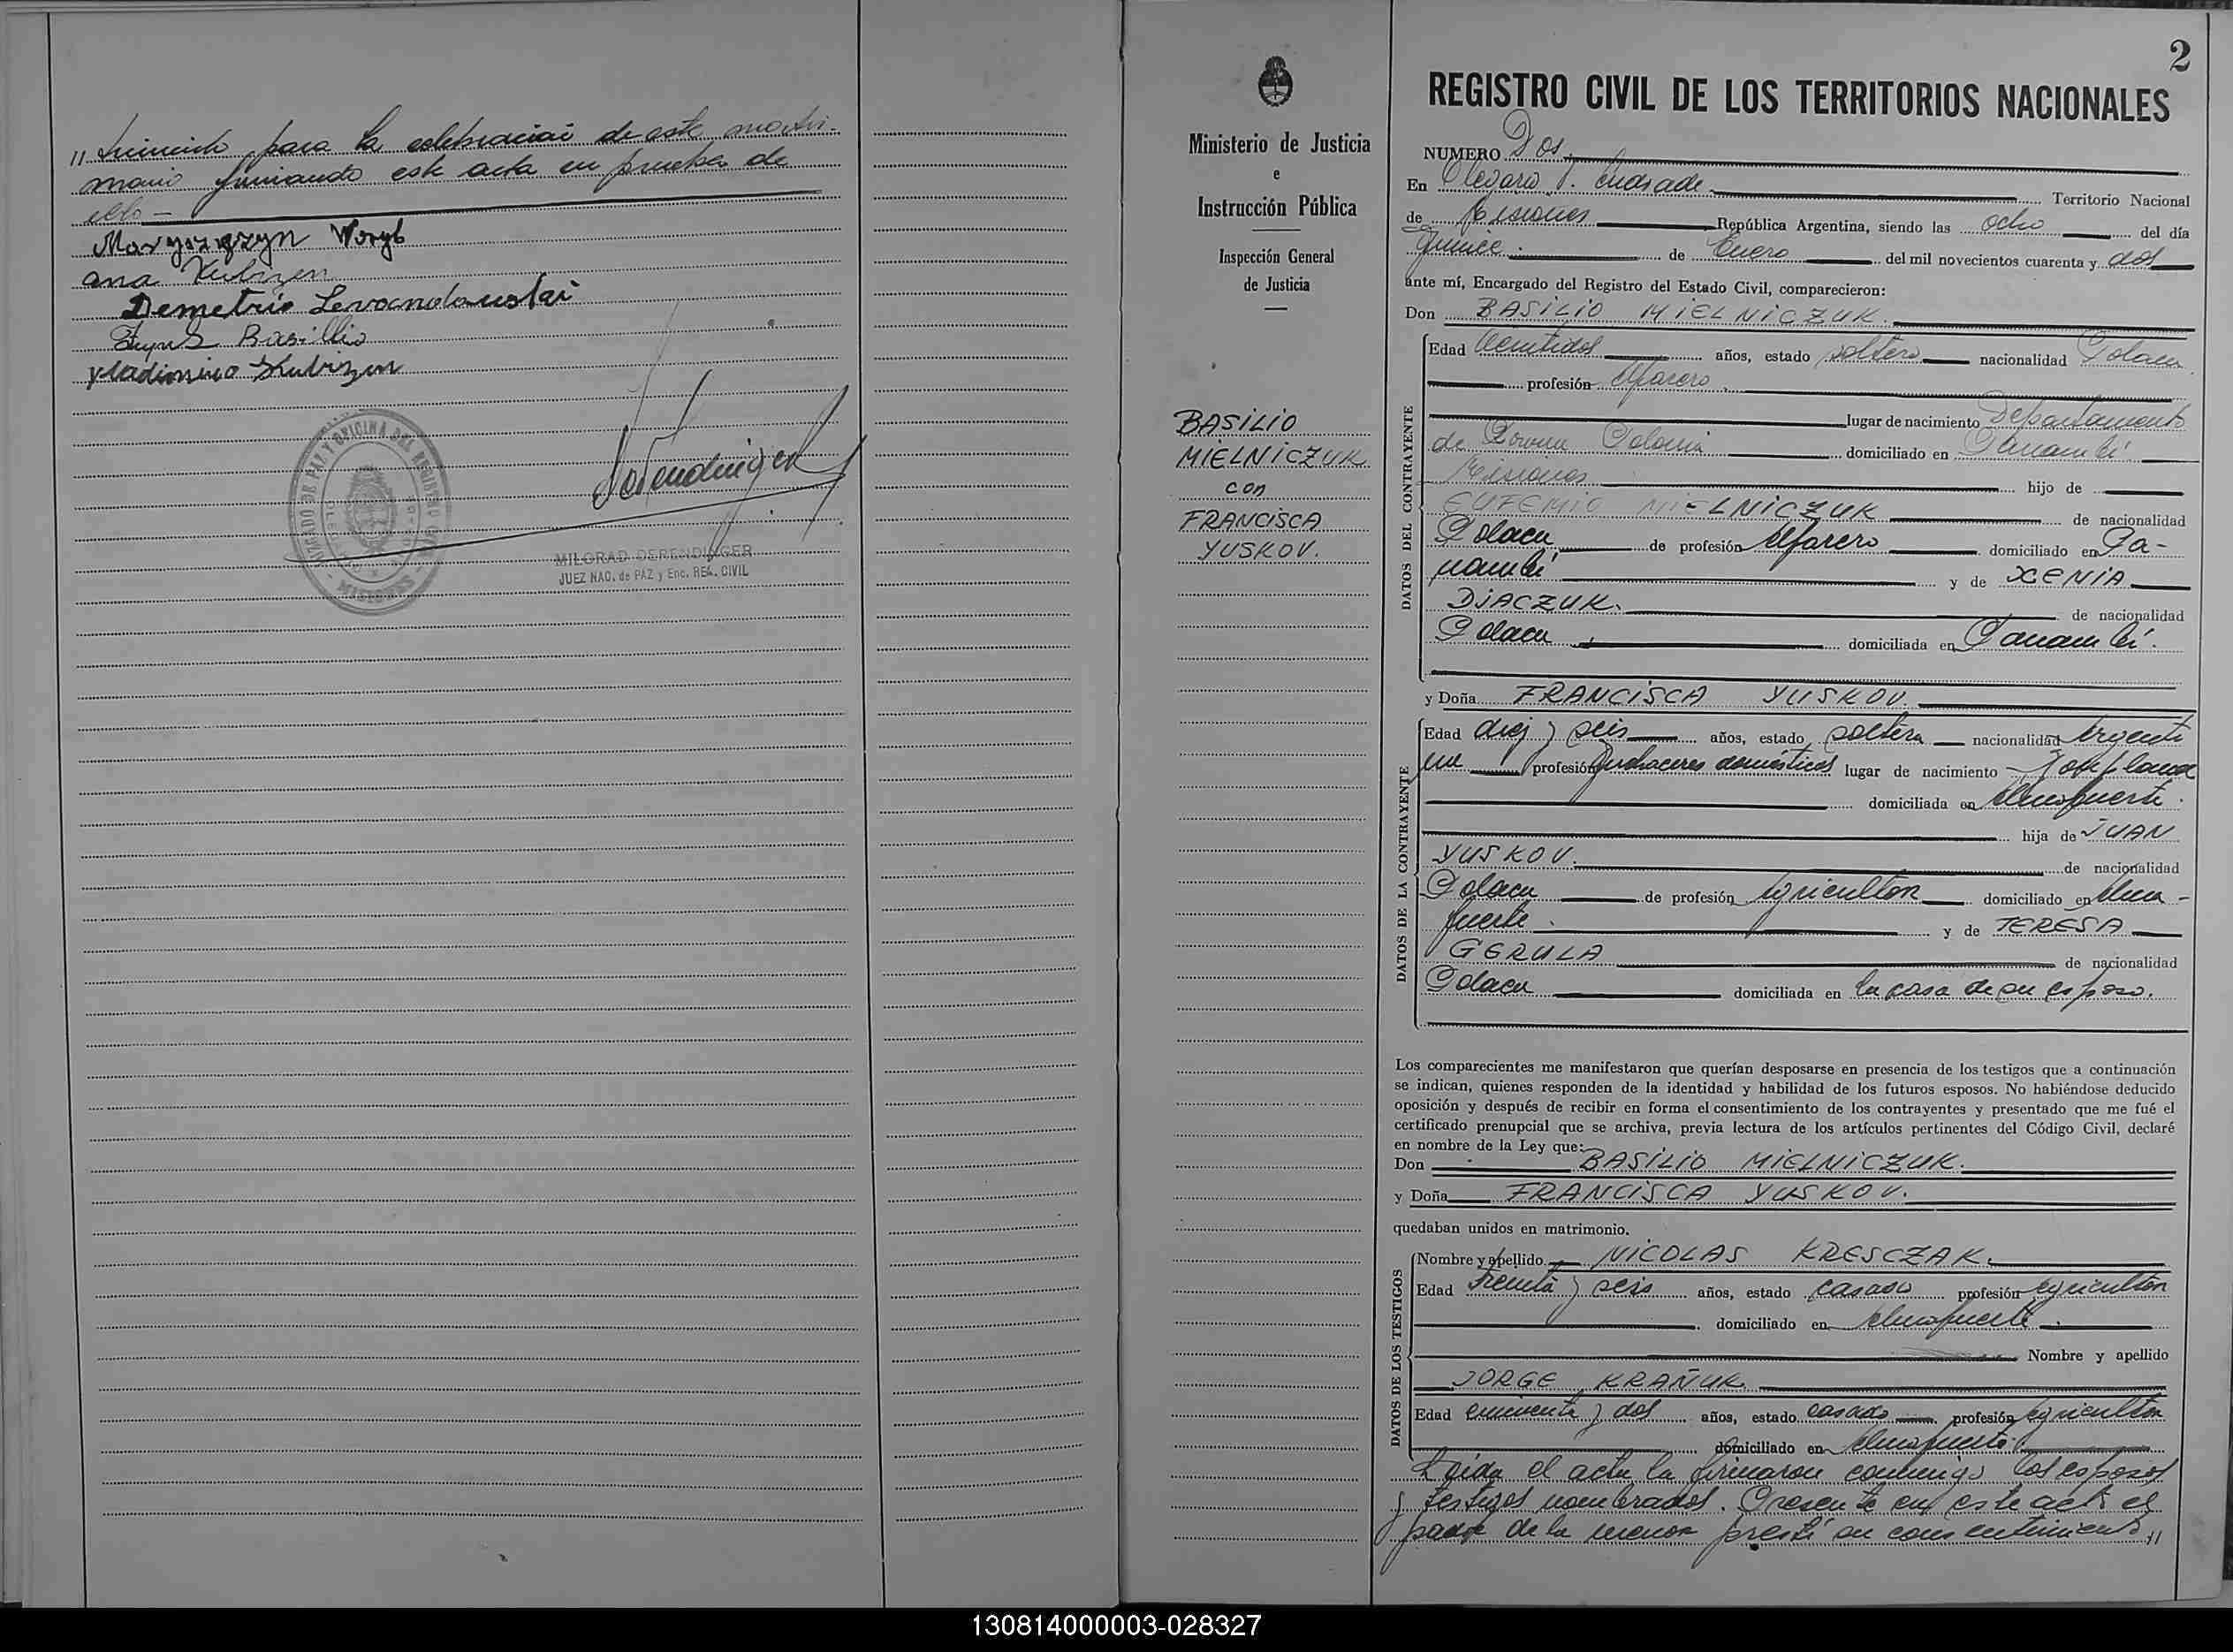 " timiento para la celebración de este matri-
monio firmando este acta en prueba de
ello —
Woryb
Ana Kubizen
Demetrio
Basilio
JUZGADO DE PAZ Y OFICINA DEL REGISTRO CIVIL
MISIONES
MILGRAD DERENDINGER
JUEZ NAC. de PAZ y Enc. REG. CIVIL
Ministerio de Justicia
e
Instrucción Pública
Inspección General
de Justicia
BASILIO
MIELNICZUK
con
FRANCISCA
YUSKOV.
2
REGISTRO CIVIL DE LOS TERRITORIOS NACIONALES
NUMERO Dos.
En Olegario V. Andrade Territorio Nacional
de Misiones República Argentina, siendo las ocho del día
quince de Enero del mil novecientos cuarenta y dos
ante mí, Encargado del Registro del Estado Civil, comparecieron:
Don BASILIO MIELNICZUK.
DATOS DEL CONTRAYENTE
Edad veintidos años, estado soltero nacionalidad Polaca
profesión Alfarero
lugar de nacimiento Departamento
de Polonia domiciliado en Panambí
Misiones hijo de
EUFEMIO MIELNICZUK de nacionalidad
Polaca de profesión Alfarero domiciliado en Pa-
nambí y de XENIA
DIACZUK. de nacionalidad
Polaca domiciliada en Panambí.
y Doña FRANCISCA YUSKOV.
DATOS DE LA CONTRAYENTE
Edad diez y seis años, estado soltera nacionalidad Argenti
na profesión Quehaceres domésticos lugar de nacimiento
domiciliada en Almafuerte.
hija de JUAN
YUSKOV. de nacionalidad
Polaca de profesión Agricultor domiciliado en Alma-
fuerte. y de TERESA
GERULA de nacionalidad
Polaca domiciliada en la casa de su esposo.
Los comparecientes me manifestaron que querían desposarse en presencia de los testigos que a continuación
se indican, quienes responden de la identidad y habilidad de los futuros esposos. No habiéndose deducido
oposición y después de recibir en forma el consentimiento de los contrayentes y presentado que me fué el
certificado prenupcial que se archiva, previa lectura de los artículos pertinentes del Código Civil, declaré
en nombre de la Ley que:
Don BASILIO MIELNICZUK.
y Doña FRANCISCA YUSKOV.
quedaban unidos en matrimonio.
DATOS DE LOS TESTIGOS
Nombre y apellido NICOLAS KRESCZAK.
Edad treinta y seis años, estado casado profesión agricultor
domiciliado en Almafuerte.
Nombre y apellido
JORGE KRAÑUK
Edad cincuenta y dos años, estado casado profesión agricultor
domiciliado en Almafuerte.
Leída el acta la firmaron conmigo los esposos
y testigos nombrados. Presente en este acto el
padre de la menor prestó su consentimiento "
130814000003-028327